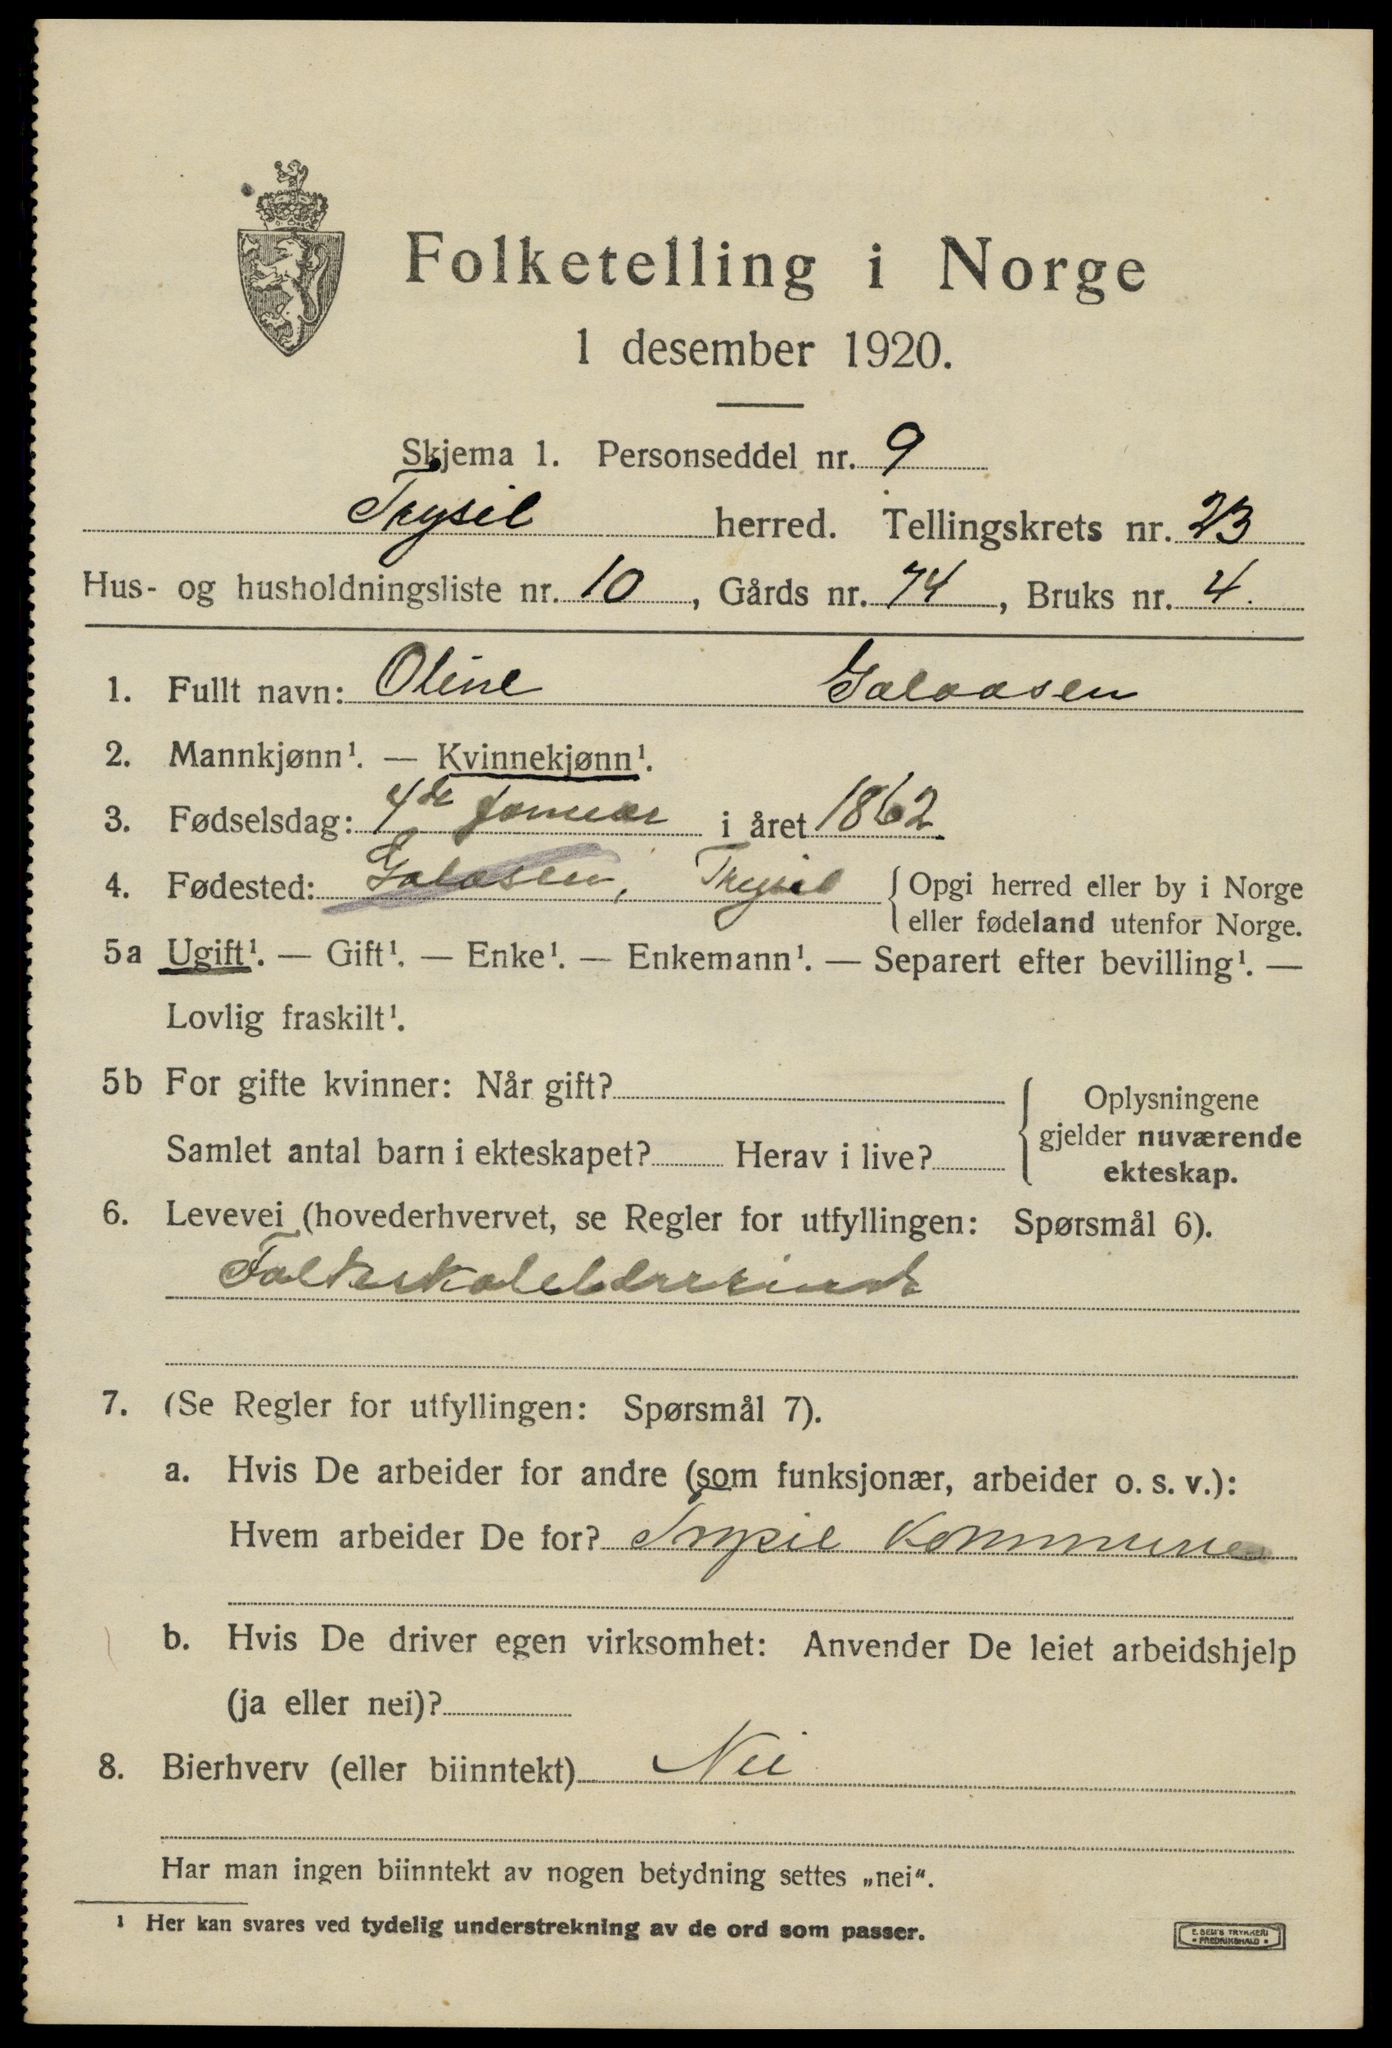 Folketelling i Norge
1 desember 1920.
Skjema 1. Personseddel nr. 9
Trysil herred. Tellingskrets nr. 23
Hus- og husholdningsliste nr. 10, Gårds nr. 74, Bruks nr. 4.
1. Fullt navn: Oline Galaasen
2. Mannkjønn¹. — Kvinnekjønn¹.
3. Fødselsdag: 4de Januar i året 1862.
4. Fødested: Galåsen, Trysil {Opgi herred eller by i Norge
eller fødeland utenfor Norge.
5a Ugift¹. — Gift¹. — Enke¹. — Enkemann¹. — Separert efter bevilling¹. —
Lovlig fraskilt¹.
5b For gifte kvinner: Når gift?
Samlet antal barn i ekteskapet? Herav i live?
{Oplysningene
gjelder nuværende
ekteskap.
6. Levevei (hovederhvervet, se Regler for utfyllingen: Spørsmål 6).
Folkeskolelærerinde
7. (Se Regler for utfyllingen: Spørsmål 7).
a. Hvis De arbeider for andre (som funksjonær, arbeider o. s. v.):
Hvem arbeider De for? Trysil Kommune
b. Hvis De driver egen virksomhet: Anvender De leiet arbeidshjelp
(ja eller nei)?
8. Bierhverv (eller biinntekt) Nei
Har man ingen biinntekt av nogen betydning settes „nei“.
¹ Her kan svares ved tydelig understrekning av de ord som passer.
E. SEM'S TRYKKERI
• FREDRIKSHALD •